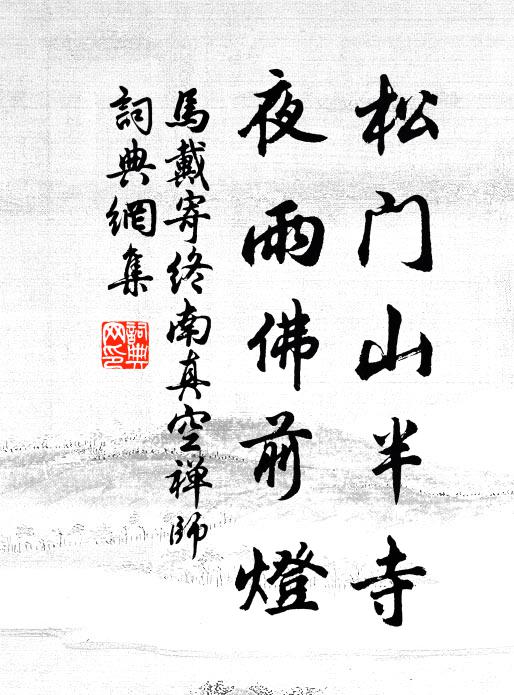 松门山半寺
夜雨佛前燈
馬戴寄终南真空禅师
詞典網集
詞典
网印